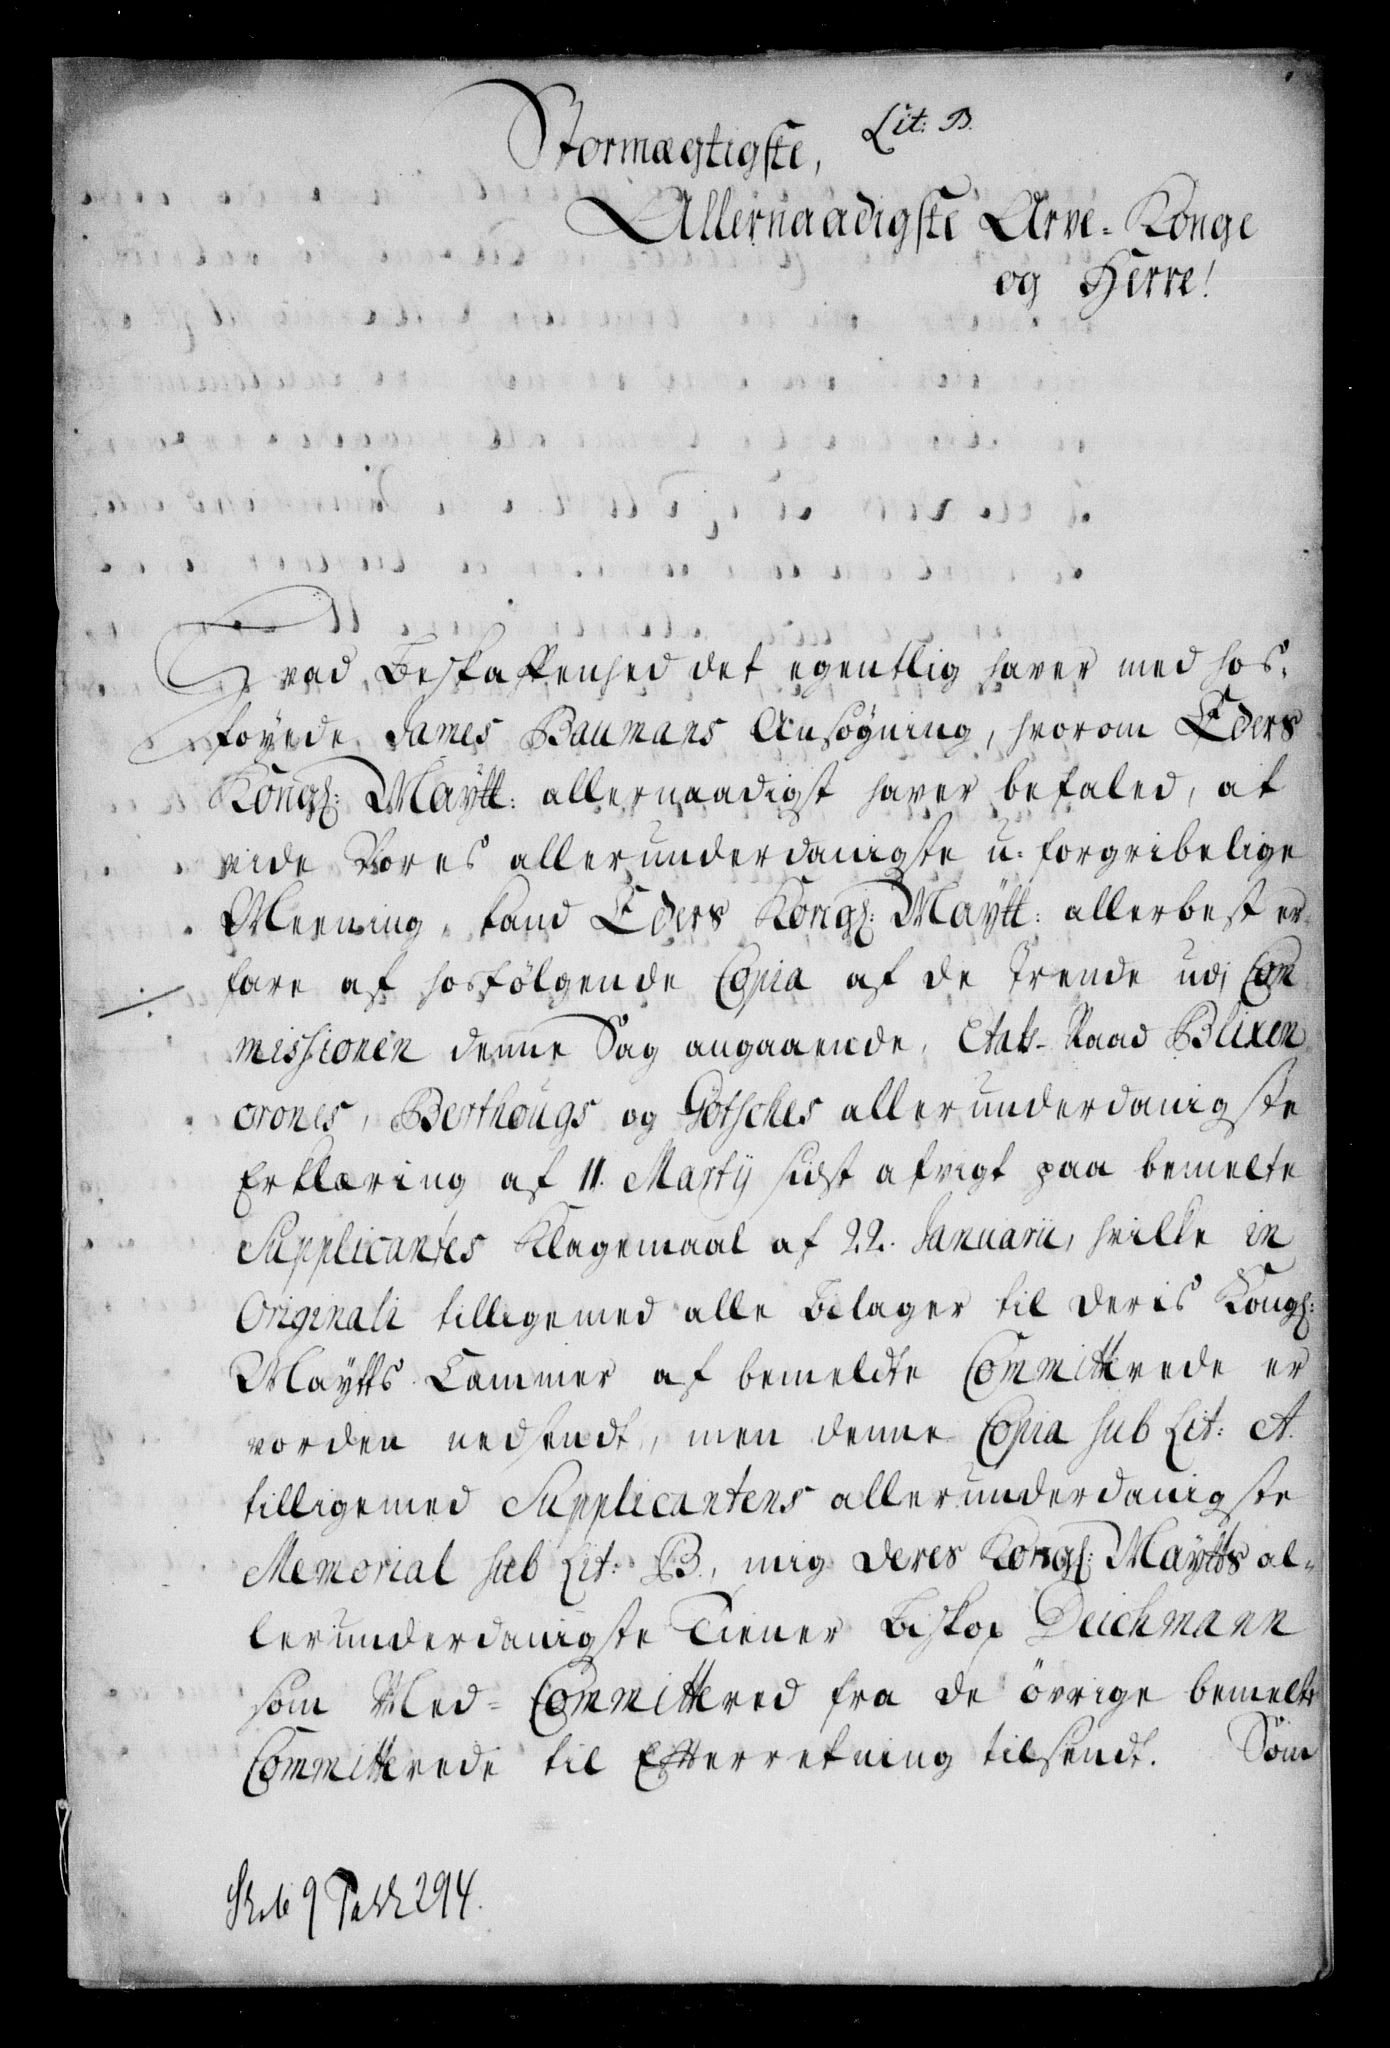 Lit: B.
Stormægtigste,
Allernaadigste Arve-Konge
og Herre!
Hvad Beskaffenhed det egentlig haver med hos-
føyede James Baumans Ansøgning, hvorom Eders
Kongl: Maytt: allernaadigst haver befaled, at
vide Vores allerunderdanigste u-forgribelige
Meening, kand Eders Kongl: Maytt: allerbest er-
fare af hosfölgende Copia af de Trende udj Com-
missionen denne Sag angaaende, Etats-Raad Blixen
crones, Berthougs og Götsches allerunderdanigste
Erklæring af 11. Martij sidst afvigt paa bemelte
Supplicantes Klagemaal af 22. Januarii, hvilke in
Originali tilligemed alle Bilager til Deris Kongl:
Maytts Cammer af bemeldte Committerede er
vorden nedsendt, men denne Copia sub Lit: A.
tilligemed Supplicantens allerunderdanigste
Memorial sub Lit: B., mig Deres Kongl: Maytts al-
lerunderdanigste Tiener Biskop Deichmann
som Med-Committered fra de övrige bemelte
Committerede til Efterretning tilsendt. Som
9 294.